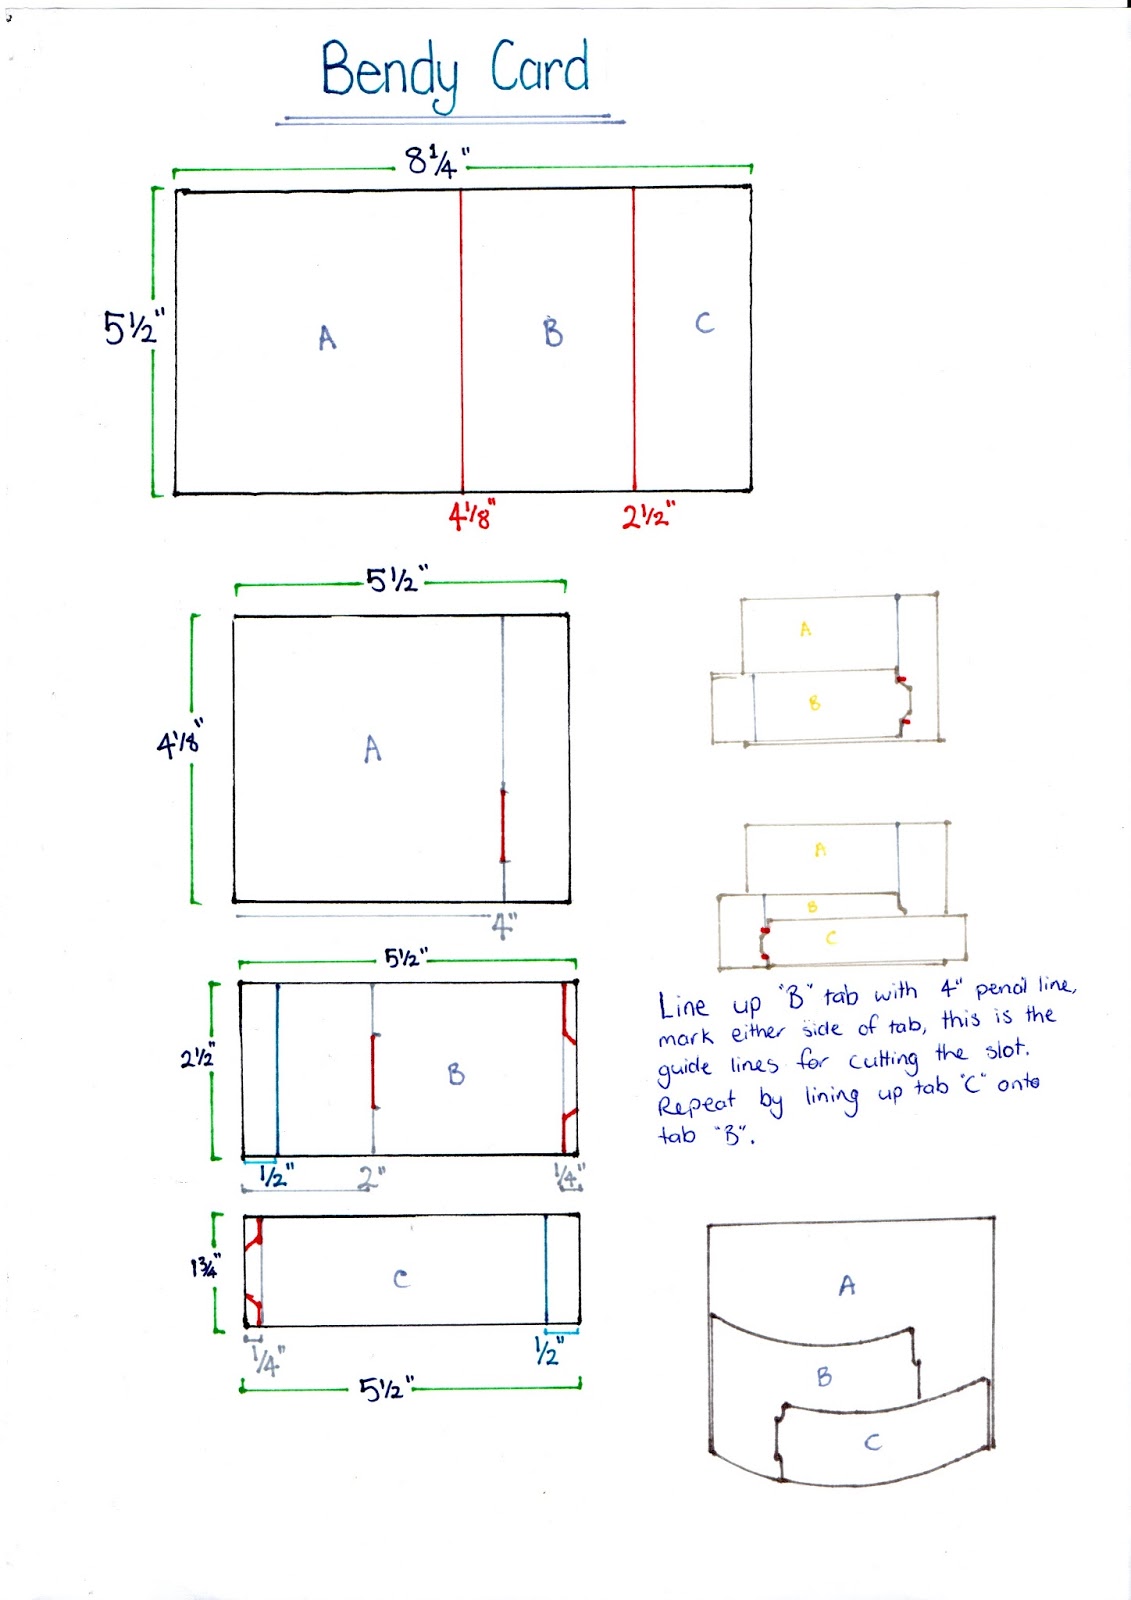 Bendy Card
8 1/4"
5 1/2"
A
B
C
4 1/8"
2 1/2"
5 1/2"
4 1/8"
A
4"
A
B
A
B
C
5 1/2"
2 1/2"
B
1/2"
2"
1/4"
Line up "B" tab with 4" pencil line,
mark either side of tab, this is the
guide lines for cutting the slot.
Repeat by lining up tab "C" onto
tab "B".
1 3/4"
C
1/4"
1/2"
5 1/2"
A
B
C